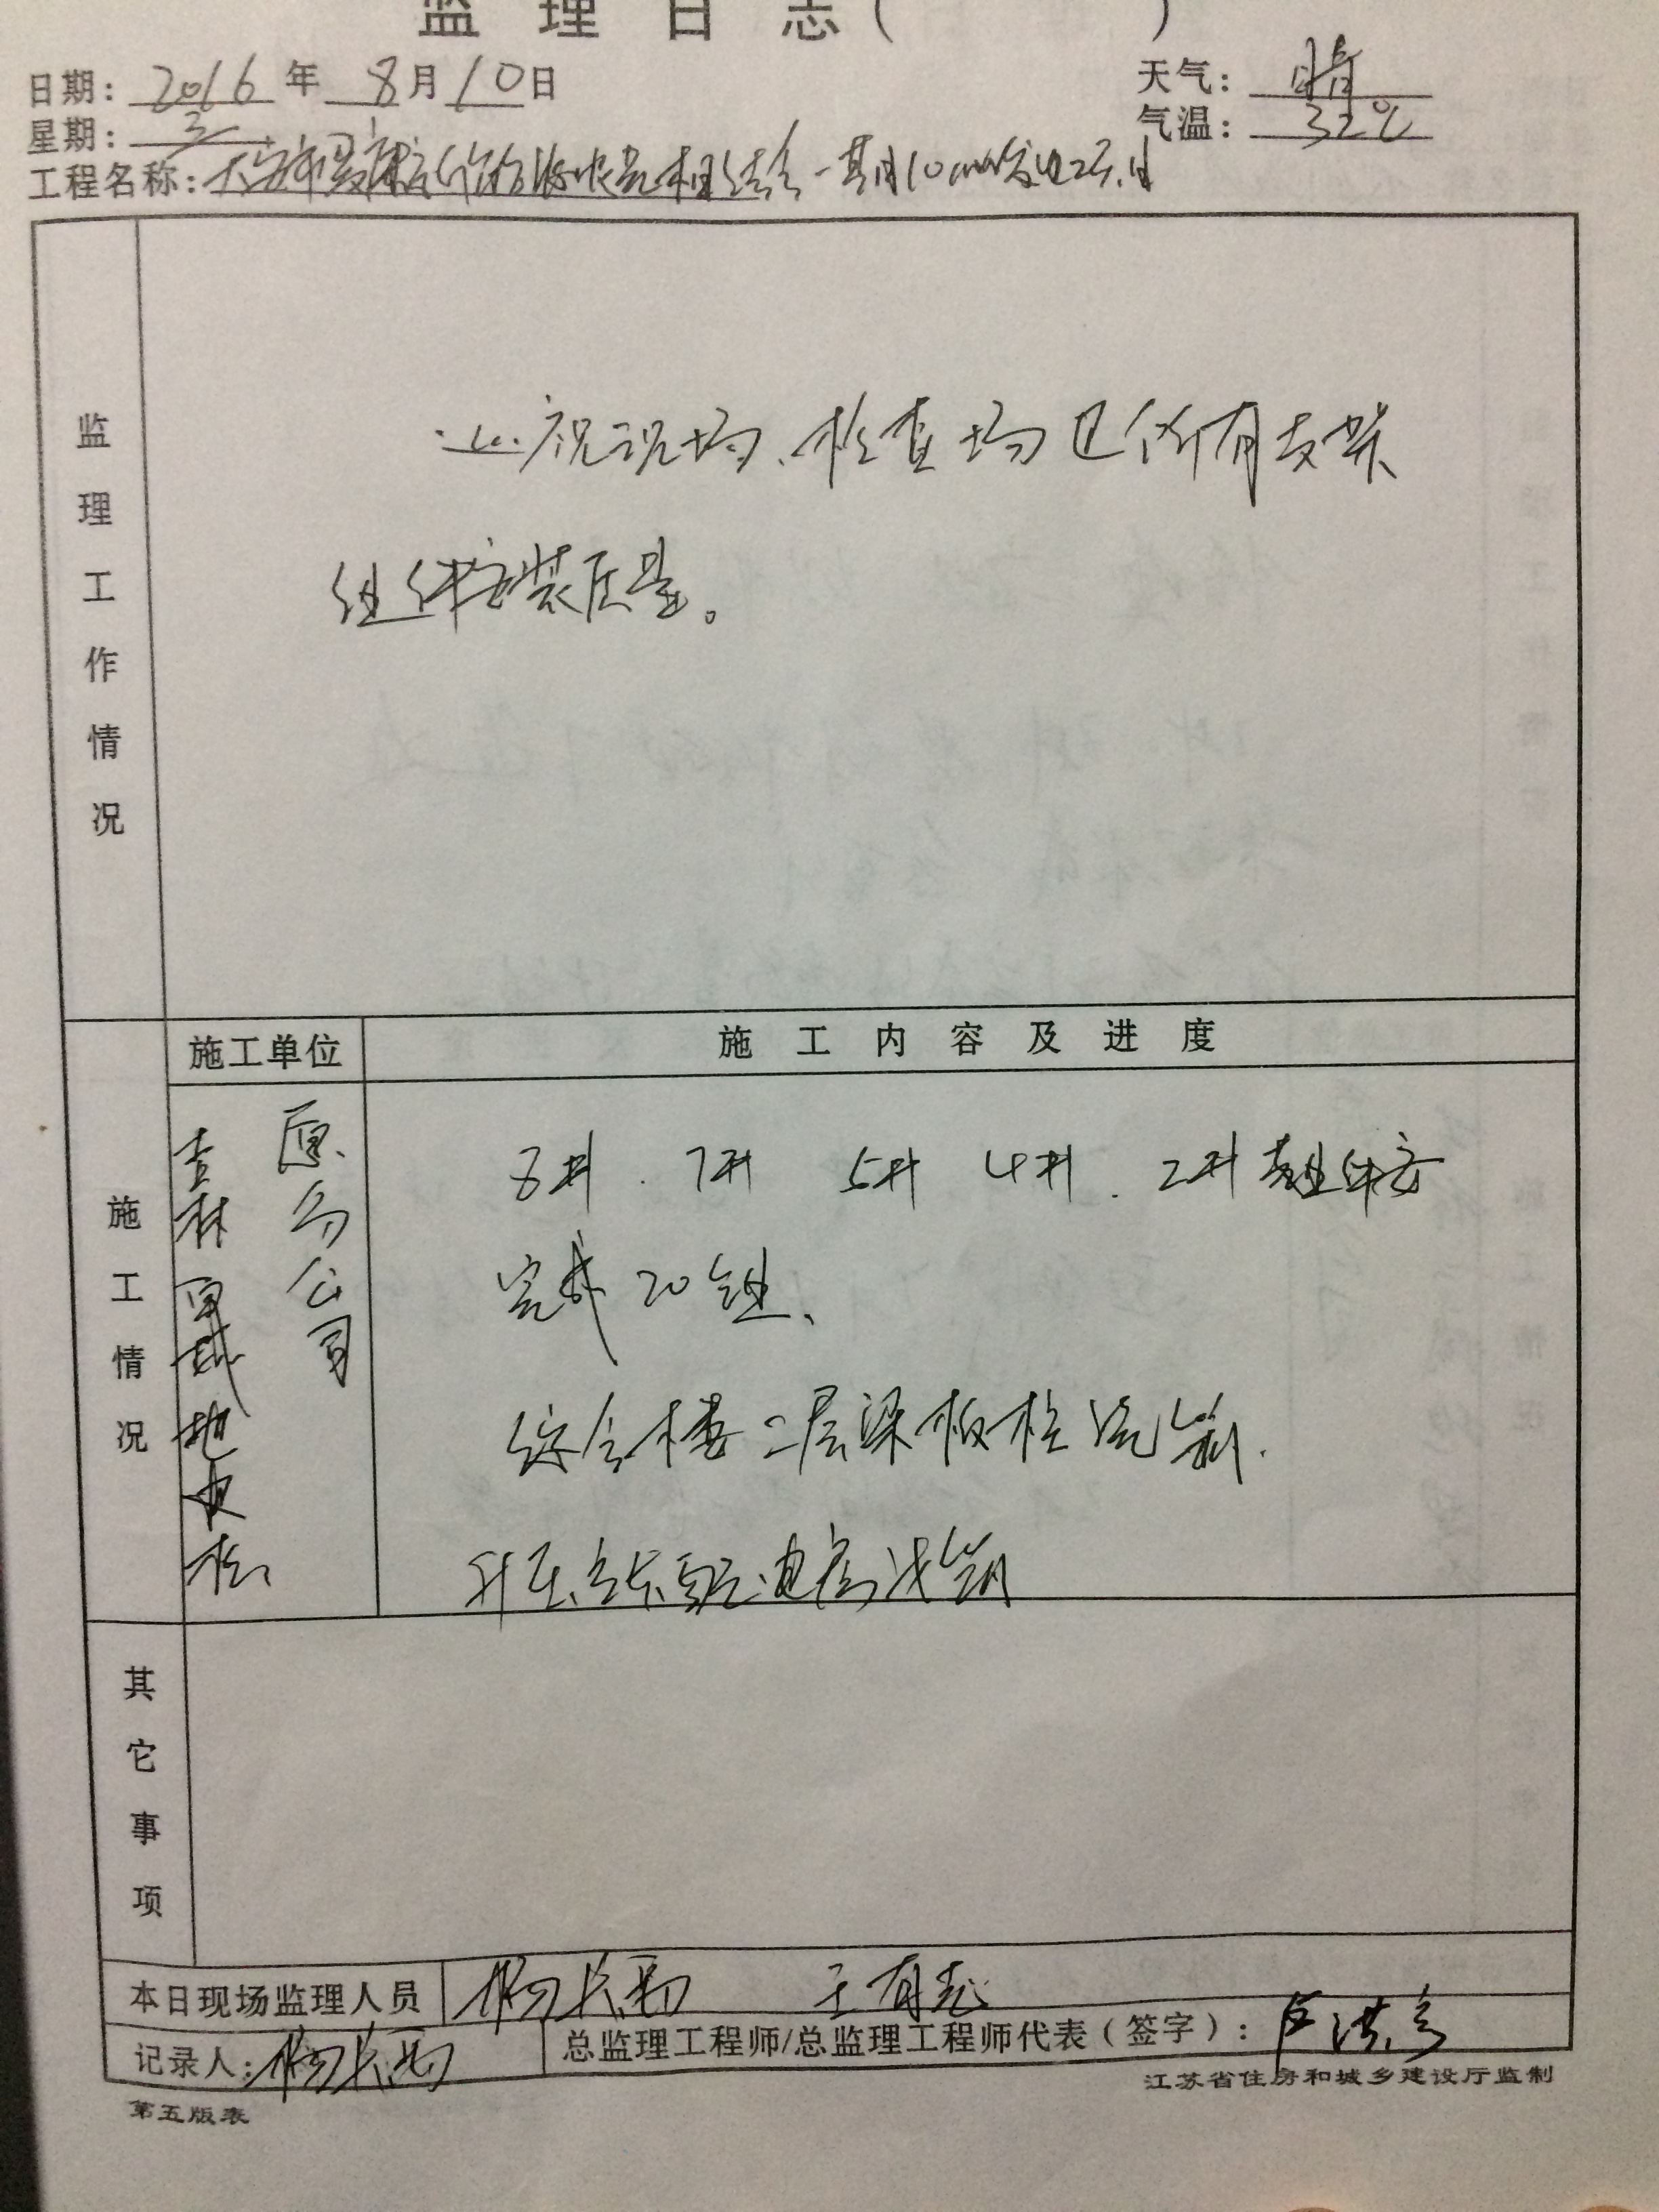 监理日志( )
日期: 2016年 8月10日
天气: 晴
星期: 三
气温: 32℃
工程名称: 大安市 农光相结合一期10MW发电项目
监理工作情况
巡视现场、检查场区所有支架
组件安装质量。
施工单位
施工内容及进度
施工情况
吉林 地电
公司
8# 7# 5# 4# 2# 组件安
完成20组、
综合楼二层梁板柱浇筑.
升压站
其它事项
本日现场监理人员 杨 王有志
记录人: 杨
总监理工程师/总监理工程师代表(签字): 卢洪
江苏省住房和城乡建设厅监制
第五版表